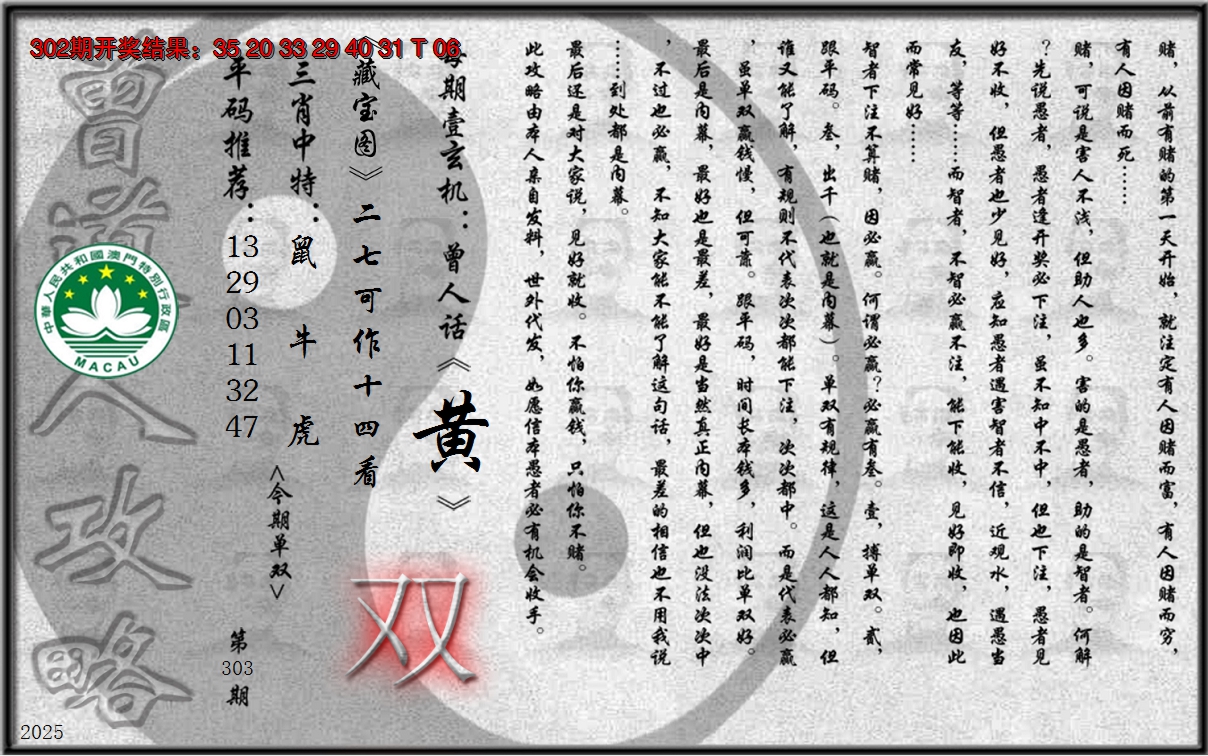 302期开奖结果：35 20 33 29 40 31 T 06
赌，从前有赌的第一天开始，就注定有人因赌而富，有人因赌而穷，
有人因赌而死……
赌，可说是害人不浅，但助人也多。害的是愚者，助的是智者。何解
？先说愚者，愚者逢开奖必下注，虽不知中不中，但也下注，愚者见
好不收，但愚者也少见好，应知愚者遇害智者不信，近观水，遇愚当
友，等等……而智者，不智必赢不注，能下能收，见好即收，也因此
而常见好……
智者下注不算赌，因必赢。何谓必赢？必赢有叁。壹，搏单双。贰，
跟平码。叁，出千（也就是内幕）。单双有规律，这是人人都知，但
谁又能了解，有规则不代表次次都能下注，次次都中。而是代表必赢
，虽单双赢钱慢，但可靠。跟平码，时间长本钱多，利润比单双好。
最后是内幕，最好也是最差，最好是当然真正内幕，但也没法次次中
，不过也必赢，不知大家能不能了解这句话，最差的相信也不用我说
……到处都是内幕。
最后还是对大家说，见好就收。不怕你赢钱，只怕你不赌。
此攻略由本人亲自发料，世外代发，如愿信本愚者必有机会收手。
每期壹玄机：曾人话《黄》
《藏宝图》二七可作十四看
双
三肖中特：鼠 牛 虎
<今期单双>
平码推荐：13 29 03 11 32 47
第303期
曾道人攻略
中華人民共和國澳門特別行政區
MACAU
2025